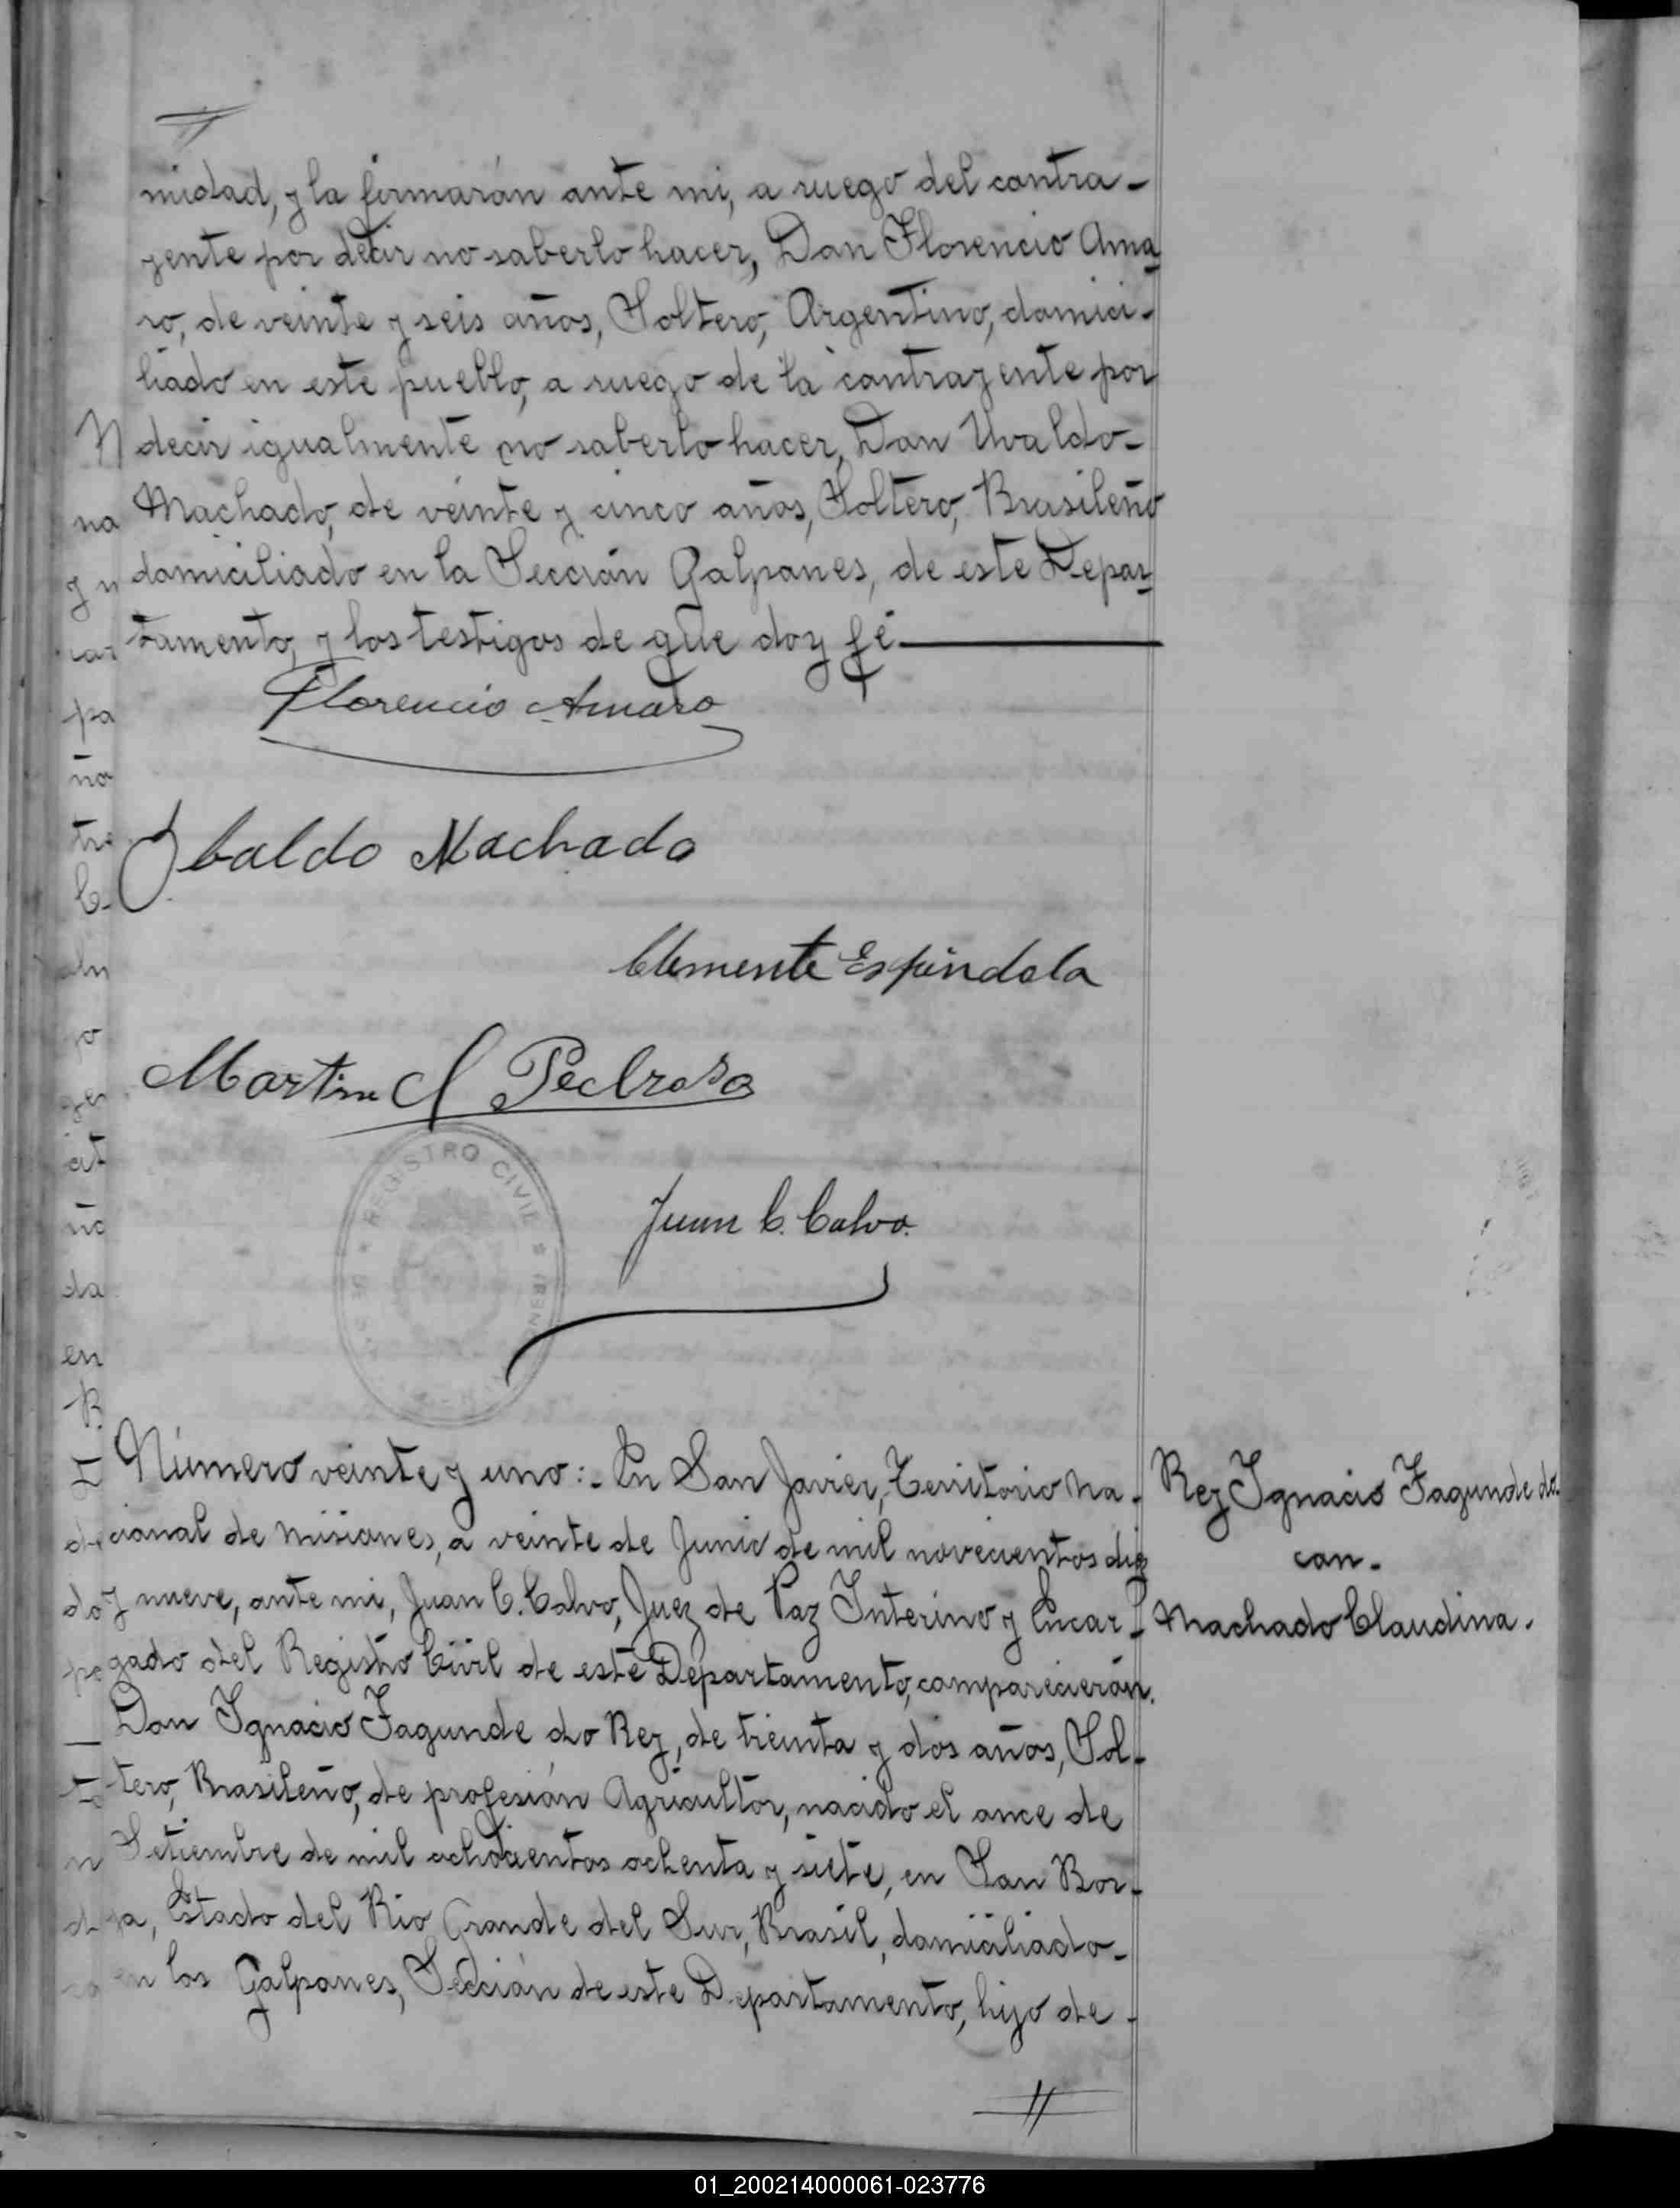 midad, y la firmarán ante mi, a ruego del contra-
yente por decir no saberlo hacer, Don Florencio Ama
ro, de veinte y seis años, Soltero, Argentino, domici-
liado en este pueblo, a ruego de la contrayente por
decir igualmente no saberlo hacer, Don Uvaldo-
Machado, de veinte y cinco años, Soltero, Brasileño
domiciliado en la Sección Galpones, de este Depar-
tamento, y los testigos de que doy fé
Florencio Amaro
Obaldo Machado
Clemente Espindola
Martin Pedroso
REGISTRO CIVIL
Juan C. Calvo.
Número veinte y uno:- En San Javier, Territorio Na-
cional de Misiones, a veinte de Junio de mil novecientos diez
y nueve, ante mi, Juan C. Calvo, Juez de Paz Interino y Encar-
gado del Registro Civil de este Departamento, comparecierón.
Don Ignacio Fagunde do Rey, de treinta y dos años, Sol-
tero, Brasileño, de profesión Agricultor, nacido el once de
Setiembre de mil ochocientos ochenta y siete, en San Bor-
ja, Estado del Rio Grande del Sur, Brasil, domiciliado-
en los Galpones, Sección de este Departamento, hijo de-
Rey Ignacio Fagunde do.
con-
Machado Claudina.
01_200214000061-023776